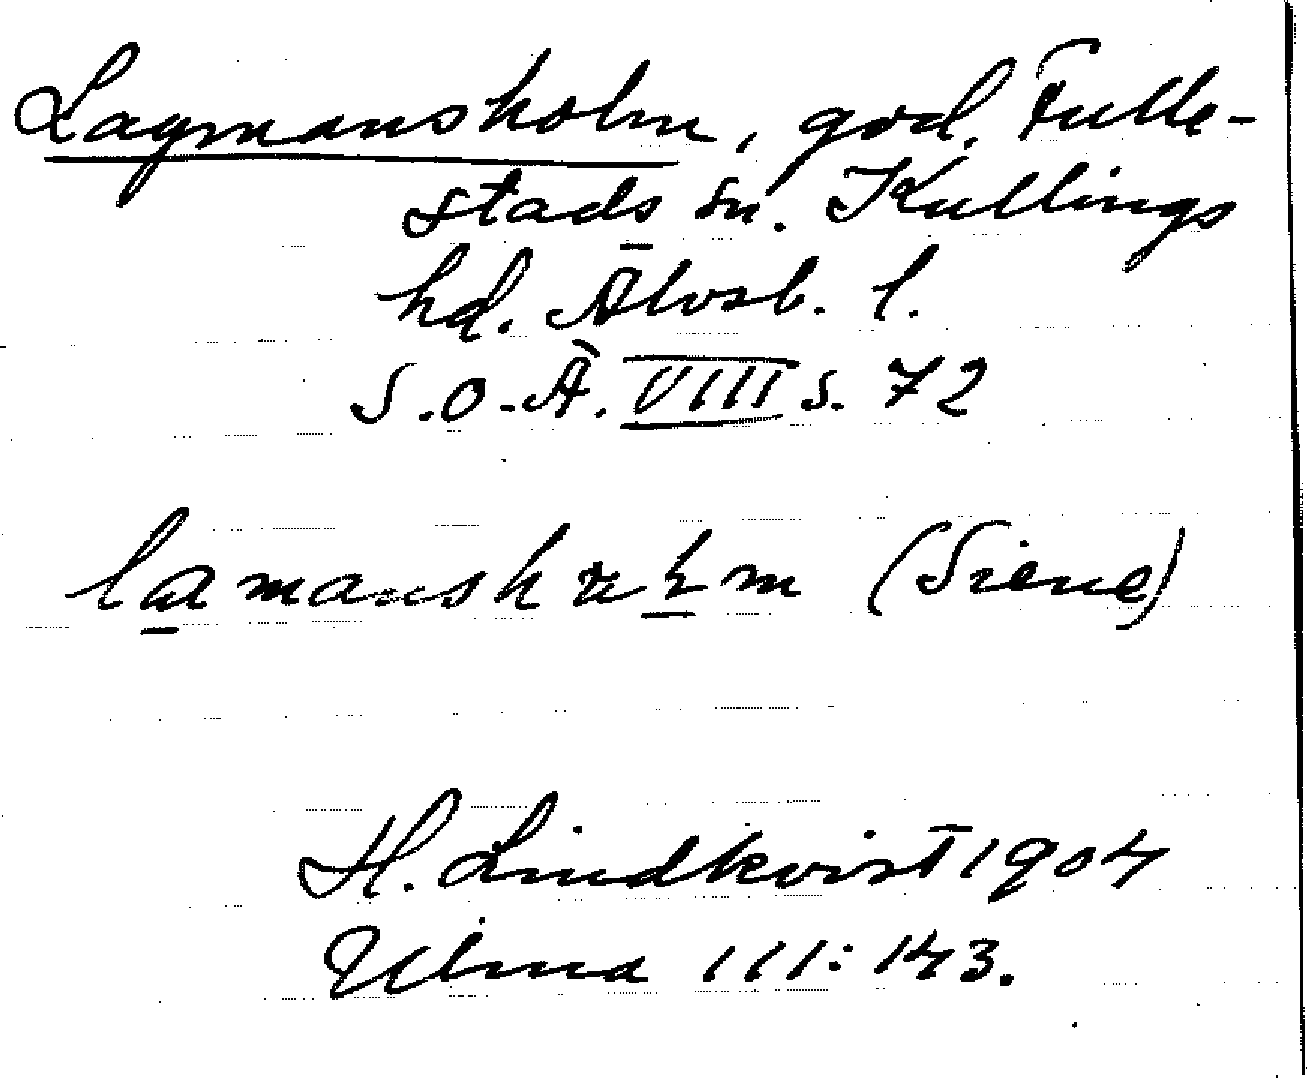 Lagmansholm, god. Fulle-
stads sn. Kullings
hd. Älvsb. l.
S.O.Ä. VIII s. 72
(Siene)
H. Lindkvist 1904
Ulma 111:143.